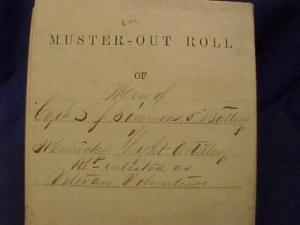 MUSTER-OUT ROLL
OF
Men of
Capt S J Simmons 5" Battery
of
Kentucky Light Artillery
Re-enlisted as
Veteran Volunteers